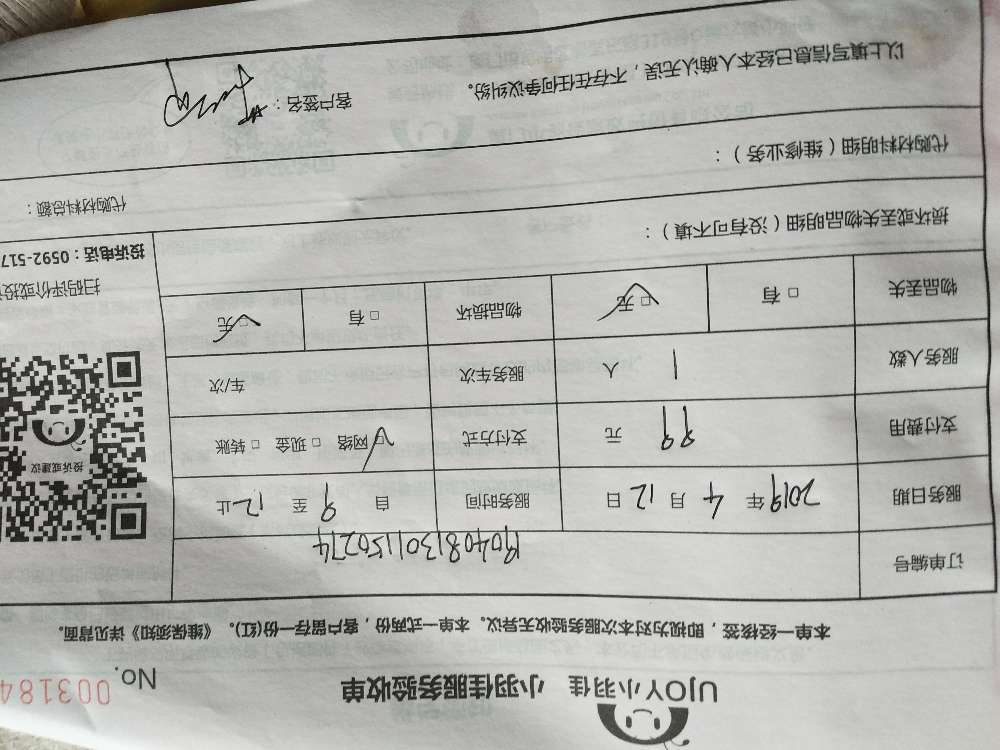 UJOY小羽佳 小羽佳服务验收单 No. 003184
本单一经接签，即视为对本次服务验收无异议。本单一式两份，客户留存一份(红)。《维保须知》详见背面。
订单编号 190408130115027４
服务日期 2019年 4月 12日 服务时间 自 9 至 12 止
支付费用 99 元 支付方式 ☑网络 □现金 □转账
服务人数 1 人 服务车次 车/次
物品丢失 □有 ☑无 物品损坏 □有 ☑无
投诉或建议
扫码评价或投
投诉电话：0592-517
损坏或丢失物品明细（没有可不填）：
代购材料总额：
代购材料明细（维修业务）：
以上填写信息已经本人确认无误，不存在任何争议纠纷。
客户签名：